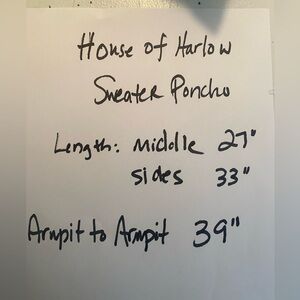 House of Harlow
Sweater Poncho
Length: middle 27"
sides 33"
Armpit to Armpit 39"